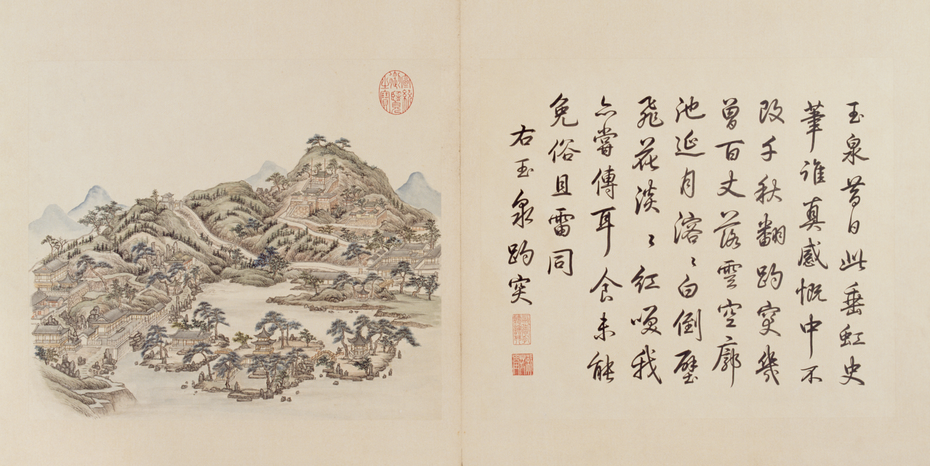 玉泉昔日此垂虹史
筆誰真感慨中不
改千秋翻趵突幾
曾百丈落雲空廓
池延月溶〻白倒壁
飛花淡〻紅咲我
亦嘗傳耳食未能
免俗且雷同
右玉泉趵突